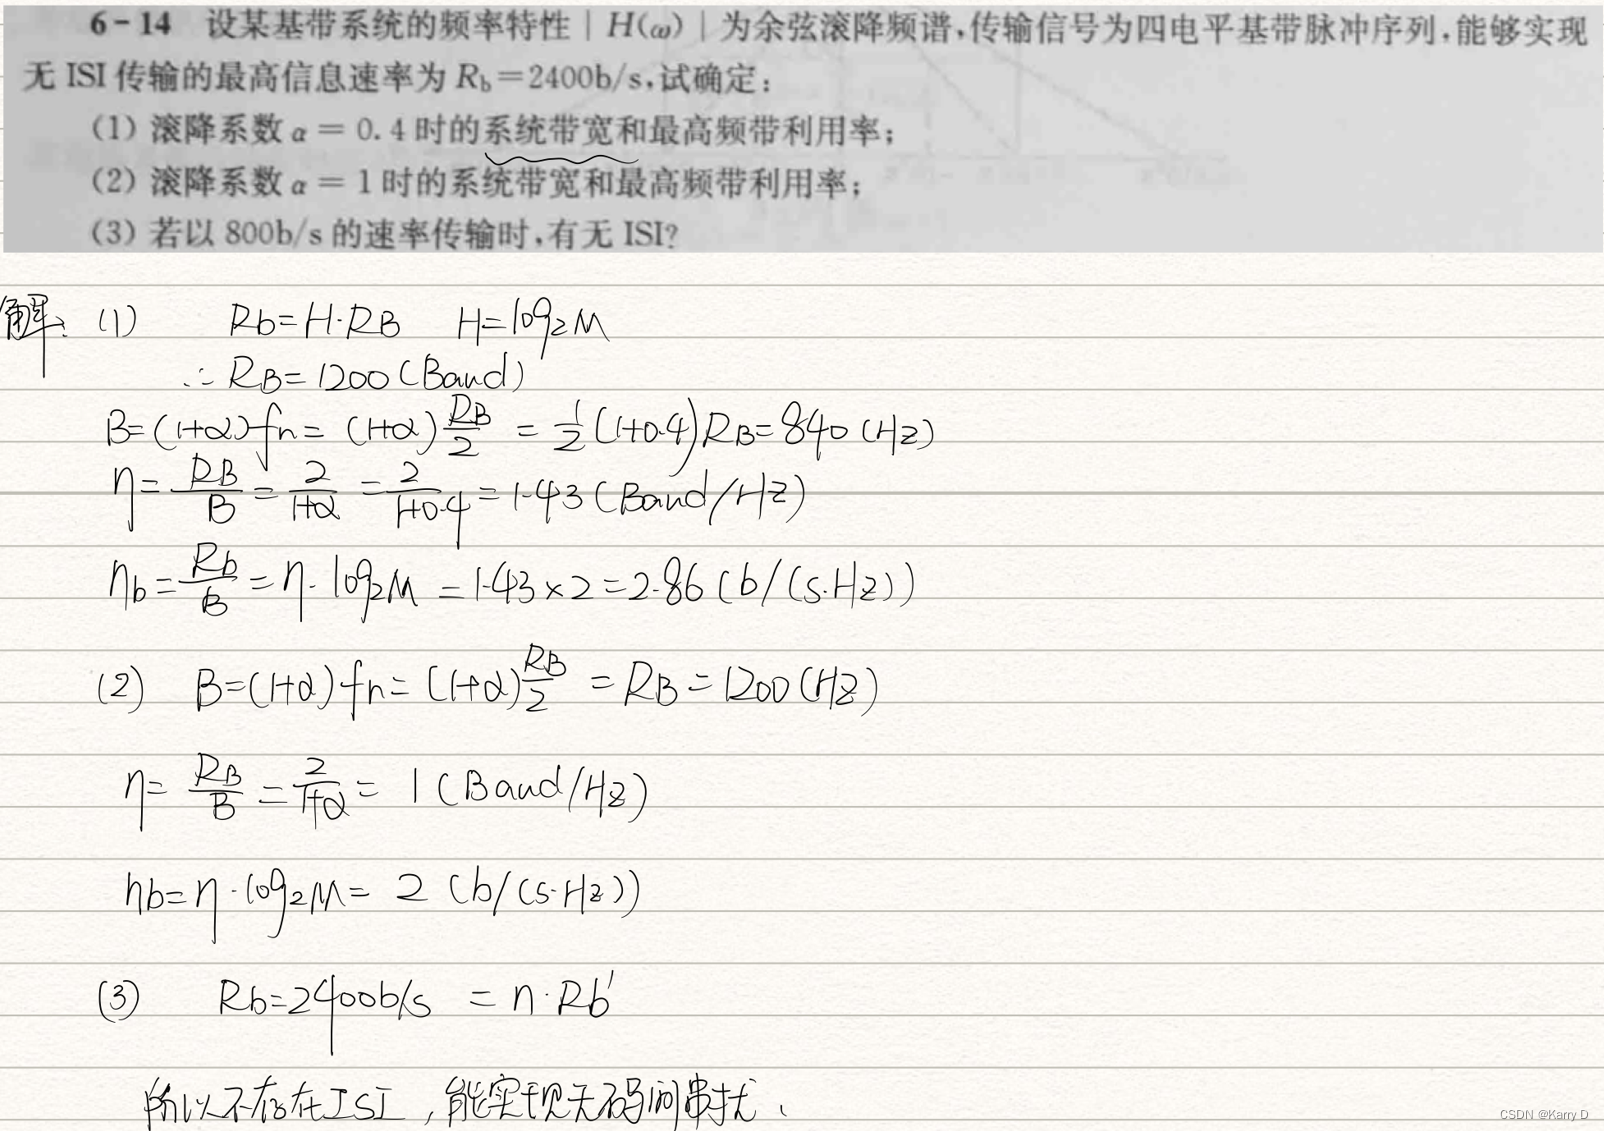 6-14 设某基带系统的频率特性|H(ω)|为余弦滚降频谱,传输信号为四电平基带脉冲序列,能够实现
无 ISI 传输的最高信息速率为 Rb=2400b/s,试确定:
(1) 滚降系数 α = 0.4 时的系统带宽和最高频带利用率;
(2) 滚降系数 α = 1 时的系统带宽和最高频带利用率;
(3) 若以 800b/s 的速率传输时,有无 ISI?
解: (1) Rb=H·RB H=log2M
∴ RB=1200(Band)
B=(1+α)fn= (1+α)RB/2 = 1/2(1+0.4)RB=840(Hz)
η=RB/B=2/1+α=2/1+0.4=1.43(Band/Hz)
ηb=Rb/B=η·log2M=1.43×2=2.86(b/(s·Hz))
(2) B=(1+α)fn=(1+α)RB/2=RB=1200(Hz)
η=RB/B=2/1+α=1(Baud/Hz)
ηb=η·log2M=2(b/(s·Hz))
(3) Rb=2400b/s =n·Rb'
所以不存在ISI,能实现无码间串扰、
CSDN @Karry D